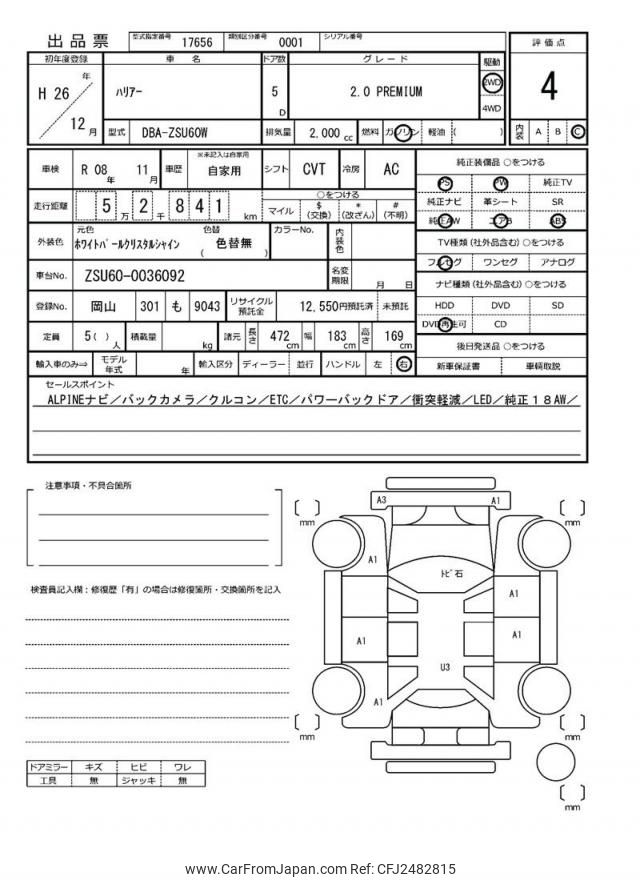 出品票
型式指定番号 17656 類別区分番号 0001 シリアル番号
初年度登録 車名 ドア数 グレード 駆動 評価点
H 26 年 12 月 ハリアー 5 D 2.0 PREMIUM 2WD 4WD 4
型式 DBA-ZSU60W 排気量 2,000 cc 燃料 ガソリン 軽油 ( ) 内装 A B C
車検 R 08 年 11 月 車歴 ※未記入は自家用 自家用 シフト CVT 冷房 AC
純正装備品 ○をつける
PS PW 純正TV
純正ナビ 革シート SR
純正AW エアB ABS
走行距離 5 万 2 千 8 4 1 km
○をつける
マイル $ (交換) * (改ざん) # (不明)
外装色 元色 ホワイトパールクリスタルシャイン 色替 ( 色替無 ) カラーNo. 内装色
TV種類 (社外品含む) ○をつける
フルセグ ワンセグ アナログ
車台No. ZSU60-0036092 名変期限 月 日
ナビ種類 (社外品含む) ○をつける
HDD DVD SD
DVD再生可 CD
登録No. 岡山 301 も 9043 リサイクル預託金 12,550円預託済 未預託
定員 5( ) 人 積載量 kg 諸元 長さ 472 cm 幅 183 cm 高さ 169 cm
後日発送品 ○をつける
新車保証書 車輌取説
輸入車のみ⇒ モデル年式 年 輸入区分 ディーラー 並行 ハンドル 左 右
セールスポイント
ALPINEナビ/バックカメラ/クルコン/ETC/パワーバックドア/衝突軽減/LED/純正18AW/
注意事項・不具合箇所
検査員記入欄：修復歴「有」の場合は修復箇所・交換箇所を記入
A3 A1
mm mm
A1
トビ石
A1
A1 A1
U3
A1
mm mm
mm
ドアミラー キズ ヒビ ワレ
工具 無 ジャッキ 無
www.CarFromJapan.com Ref: CFJ2482815